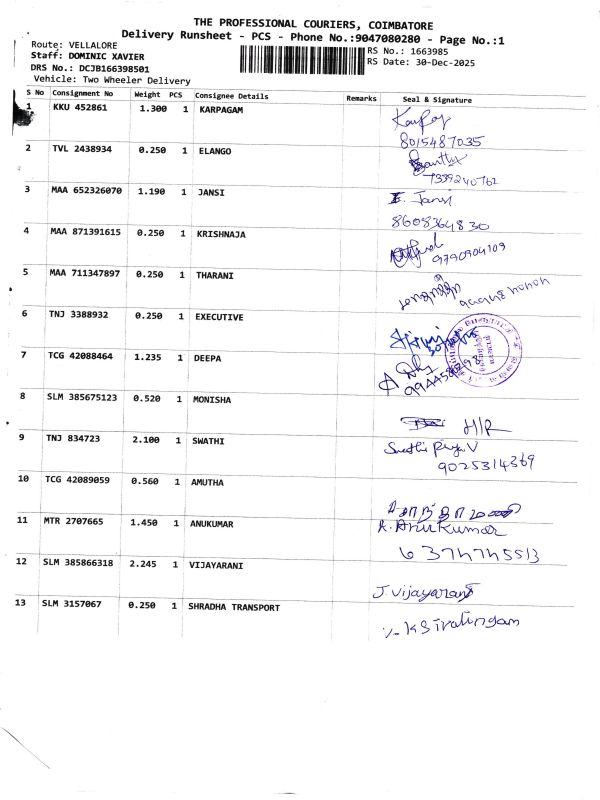 THE PROFESSIONAL COURIERS, COIMBATORE
Delivery Runsheet - PCS - Phone No.:9047080280 - Page No.:1
Route: VELLALORE
Staff: DOMINIC XAVIER
DRS No.: DCJB166398501
Vehicle: Two Wheeler Delivery
RS No.: 1663985
RS Date: 30-Dec-2025
S No Consignment No Weight PCS Consignee Details Remarks Seal & Signature
1 KKU 452861 1.300 1 KARPAGAM
8015487035
2 TVL 2438934 0.250 1 ELANGO
7339240762
3 MAA 652326070 1.190 1 JANSI
E. Jansi
8608364830
4 MAA 871391615 0.250 1 KRISHNAJA
9790904109
5 MAA 711347897 0.250 1 THARANI
6 TNJ 3388932 0.250 1 EXECUTIVE
7 TCG 42088464 1.235 1 DEEPA
8 SLM 385675123 0.520 1 MONISHA
H/R
9 TNJ 834723 2.100 1 SWATHI
Swathi Priya V
9025314369
10 TCG 42089059 0.560 1 AMUTHA
11 MTR 2707665 1.450 1 ANUKUMAR
R. Anukumar
6374745513
12 SLM 385866318 2.245 1 VIJAYARANI
J. Vijayarani
13 SLM 3157067 0.250 1 SHRADHA TRANSPORT
K Sivalingam